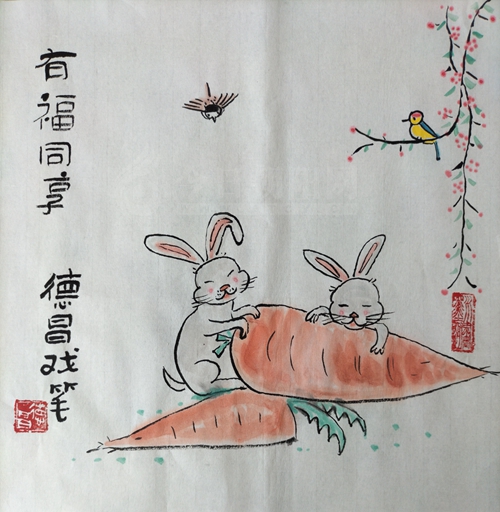 有福同享
德昌戏笔
德昌